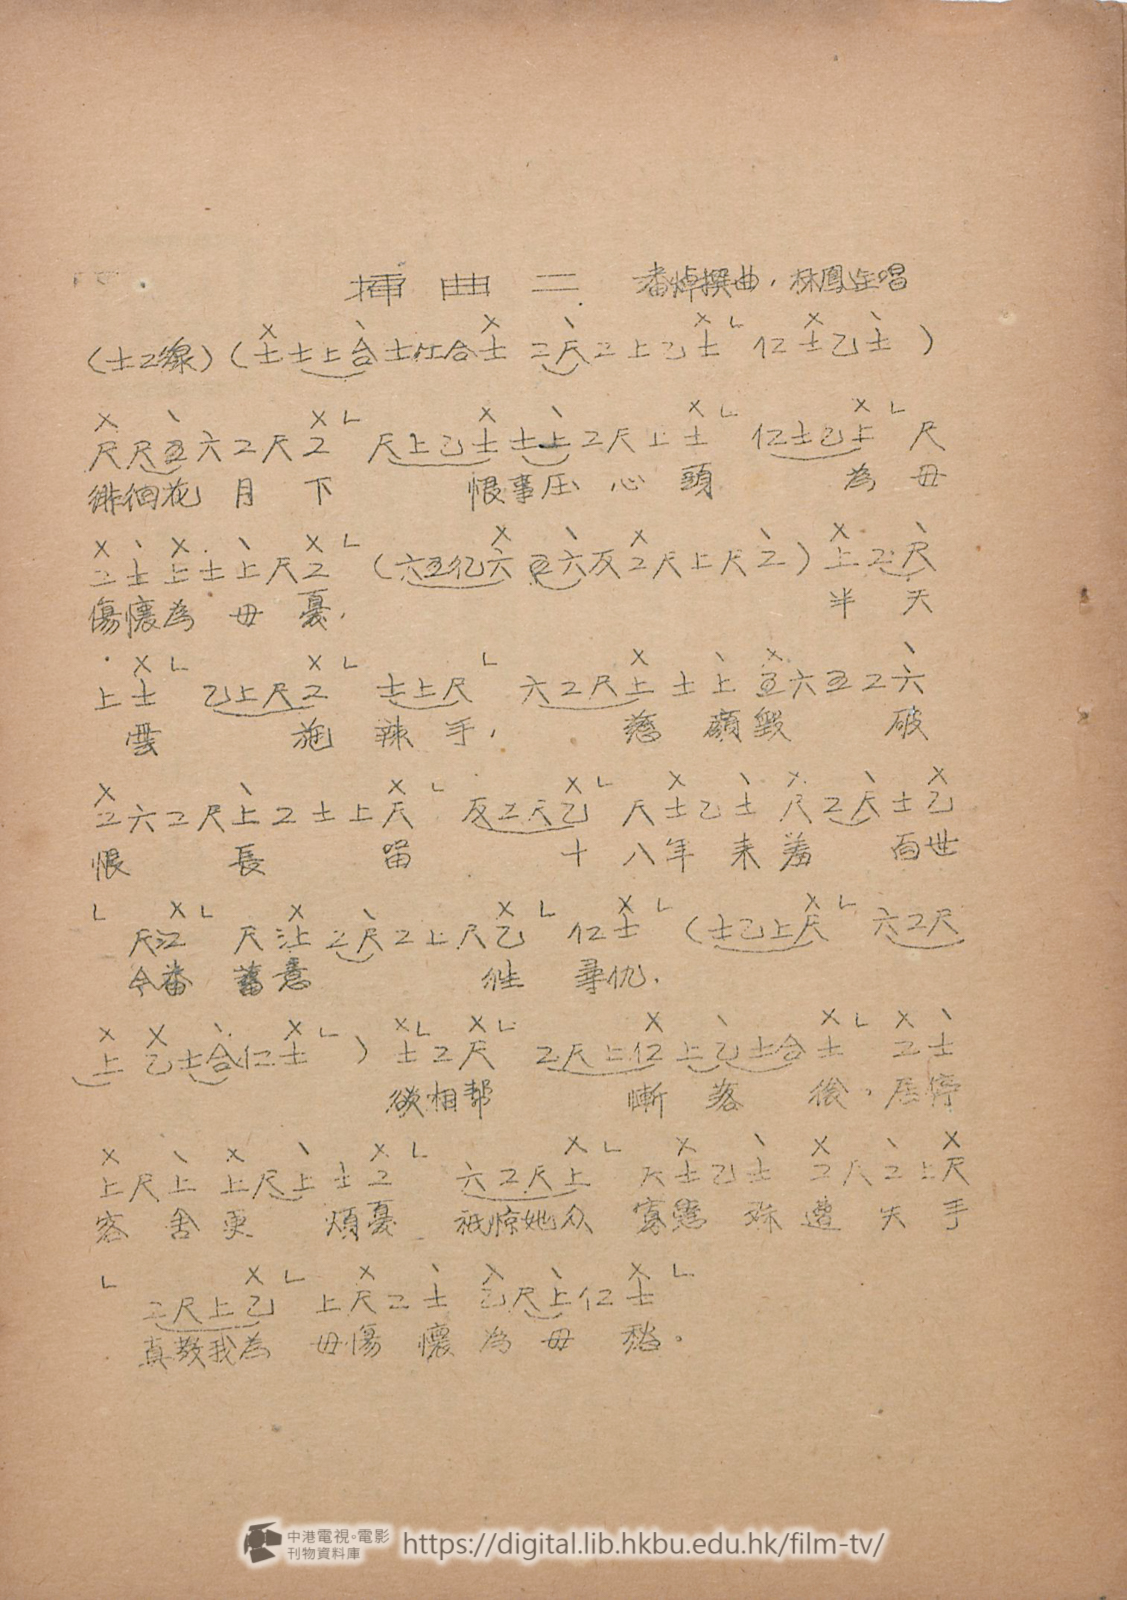 插曲二 潘焯撰曲，林鳳主唱
（士工線）（士士上合士仕合士 工尺工上乙士 仜士乙士）
尺尺五六工尺工 尺上乙士士上工尺上士 仜士乙上 尺
徘徊花月下 恨事压心頭 為毋
工士上士上尺工（六五伬六五六反工尺上尺工）上工尺
傷懷為毋憂． 半天
上士 乙上尺工 士上尺 六工尺上士上五六五工六
雲 施辣手， 慈顏毀 破
工六工尺上工士上尺 反工尺乙 尺士乙士尺工尺士乙
恨 長 留 十八年来羞 百世
尺 尺 工尺工上尺乙 仜士（士乙上尺 六工尺
今番蓄意 往尋仇．
上 乙士合仜士）士工尺 工尺上仜上乙士合士 工士
欲相帮 慚落後，居停
上尺上上尺上士工 六工尺上 尺士乙士工尺工上尺
客舍更煩憂 衆寡懸殊遭失手
工尺上乙 上尺工士乙尺上仜士
真教我為毋傷懷為毋愁．
中港電視·電影
刊物資料庫
https://digital.lib.hkbu.edu.hk/film-tv/